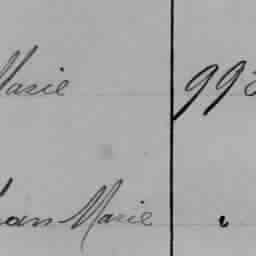 Marie 993
Jean Marie "